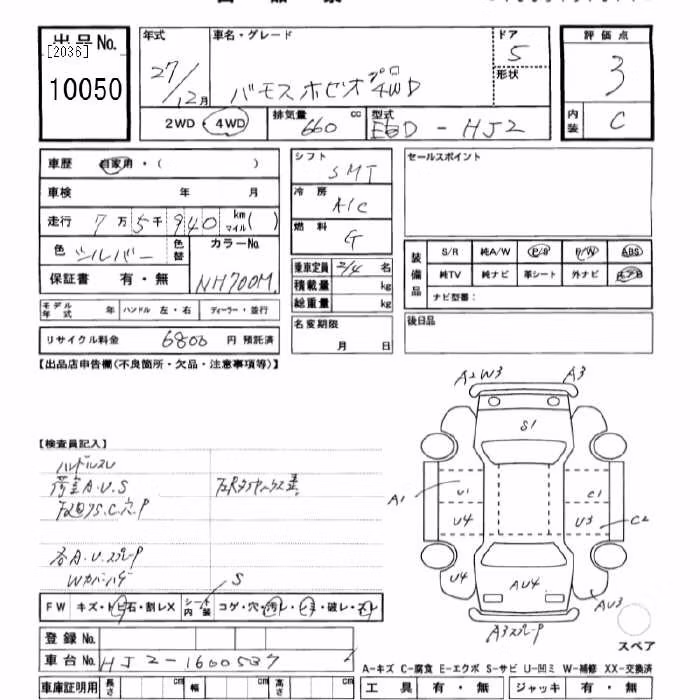 出品No.
[2036]
10050
年式 車名・グレード ドア
27/12月 バモスホビオプロ4WD 5
形状
2WD・4WD 排気量 660 cc 型式 EBD-HJ2
評価点
3
内装 C
車歴 自家用・( )
車検 年 月
走行 7万5千940 km マイル( )
色 シルバー 色替 カラーNo. NH700M
保証書 有・無
モデル年式 年 ハンドル 左・右 ディーラー・並行
リサイクル料金 6800 円 預託済
シフト 5MT
冷房 A/C
燃料 G
乗車定員 2/4 名
積載量 kg
総重量 kg
名変期限
月 日
セールスポイント
装備品 S/R 純A/W P/S P/W ABS
純TV 純ナビ 革シート 外ナビ エアB
ナビ型番:
後日品
【出品店申告欄(不良箇所・欠品・注意事項等)】
【検査員記入】
ハンドルスレ
荷室A.U.S
各A.U.スプレーP
Wカバーハゲ
S
FW キズ・トビ石・割レX シート内装 コゲ・穴・汚レ・シミ・破レ・スレ
登録No.
車台No. HJ2-1600537
車庫証明用 長さ cm 幅 cm 高さ cm
A2W3 A3
S1
A1 U1 C1
U4 U3 C2
U4 AU4 AU3
A3スプレーP
スペア
A-キズ C-腐食 E-エクボ S-サビ U-凹ミ W-補修 XX-交換済
工具 有・無 ジャッキ 有・無